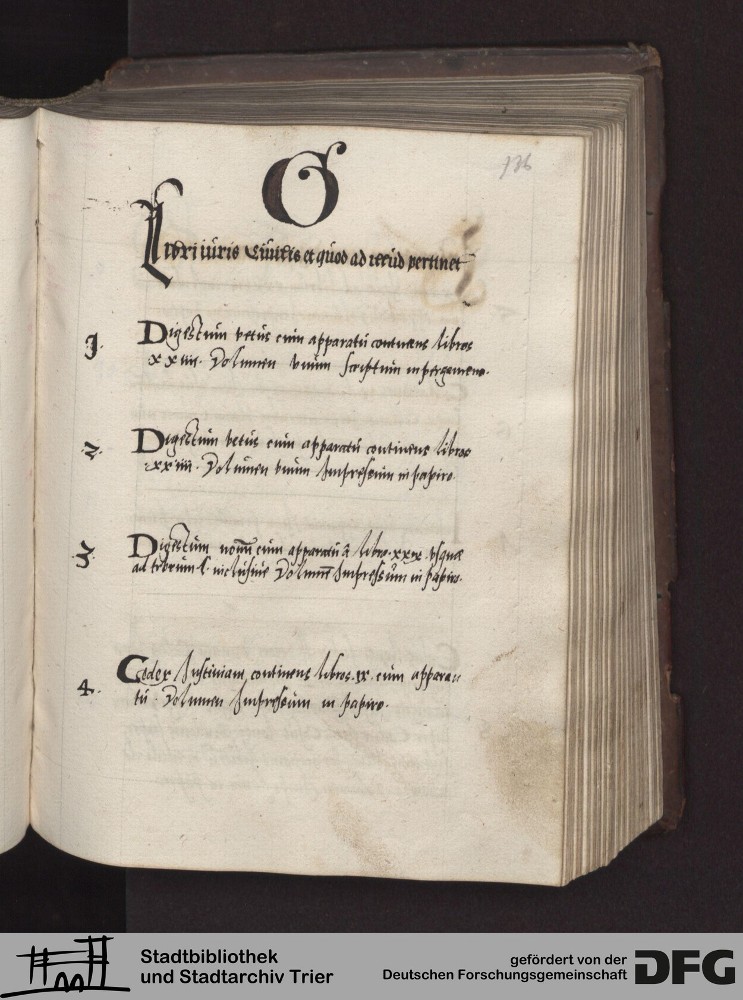 136
G
Libri iuris Ciuilis et quod ad illud pertinet
1. Digestum vetus cum apparatu continens libros
xxiiii. Volumen vnum scriptum in pergameno.
2. Digestum vetus cum apparatu continens libros
xxiiii. Volumen vnum Impressum in papiro.
3. Digestum nouum cum apparatu a libro .xxxix. vsque
ad librum l. inclusiue Volumen Impressum in papiro.
4. Codex Justiniani continens libros .ix. cum appara
tu. Volumen Impressum in papiro.
Stadtbibliothek
und Stadtarchiv Trier
gefördert von der
Deutschen Forschungsgemeinschaft
DFG